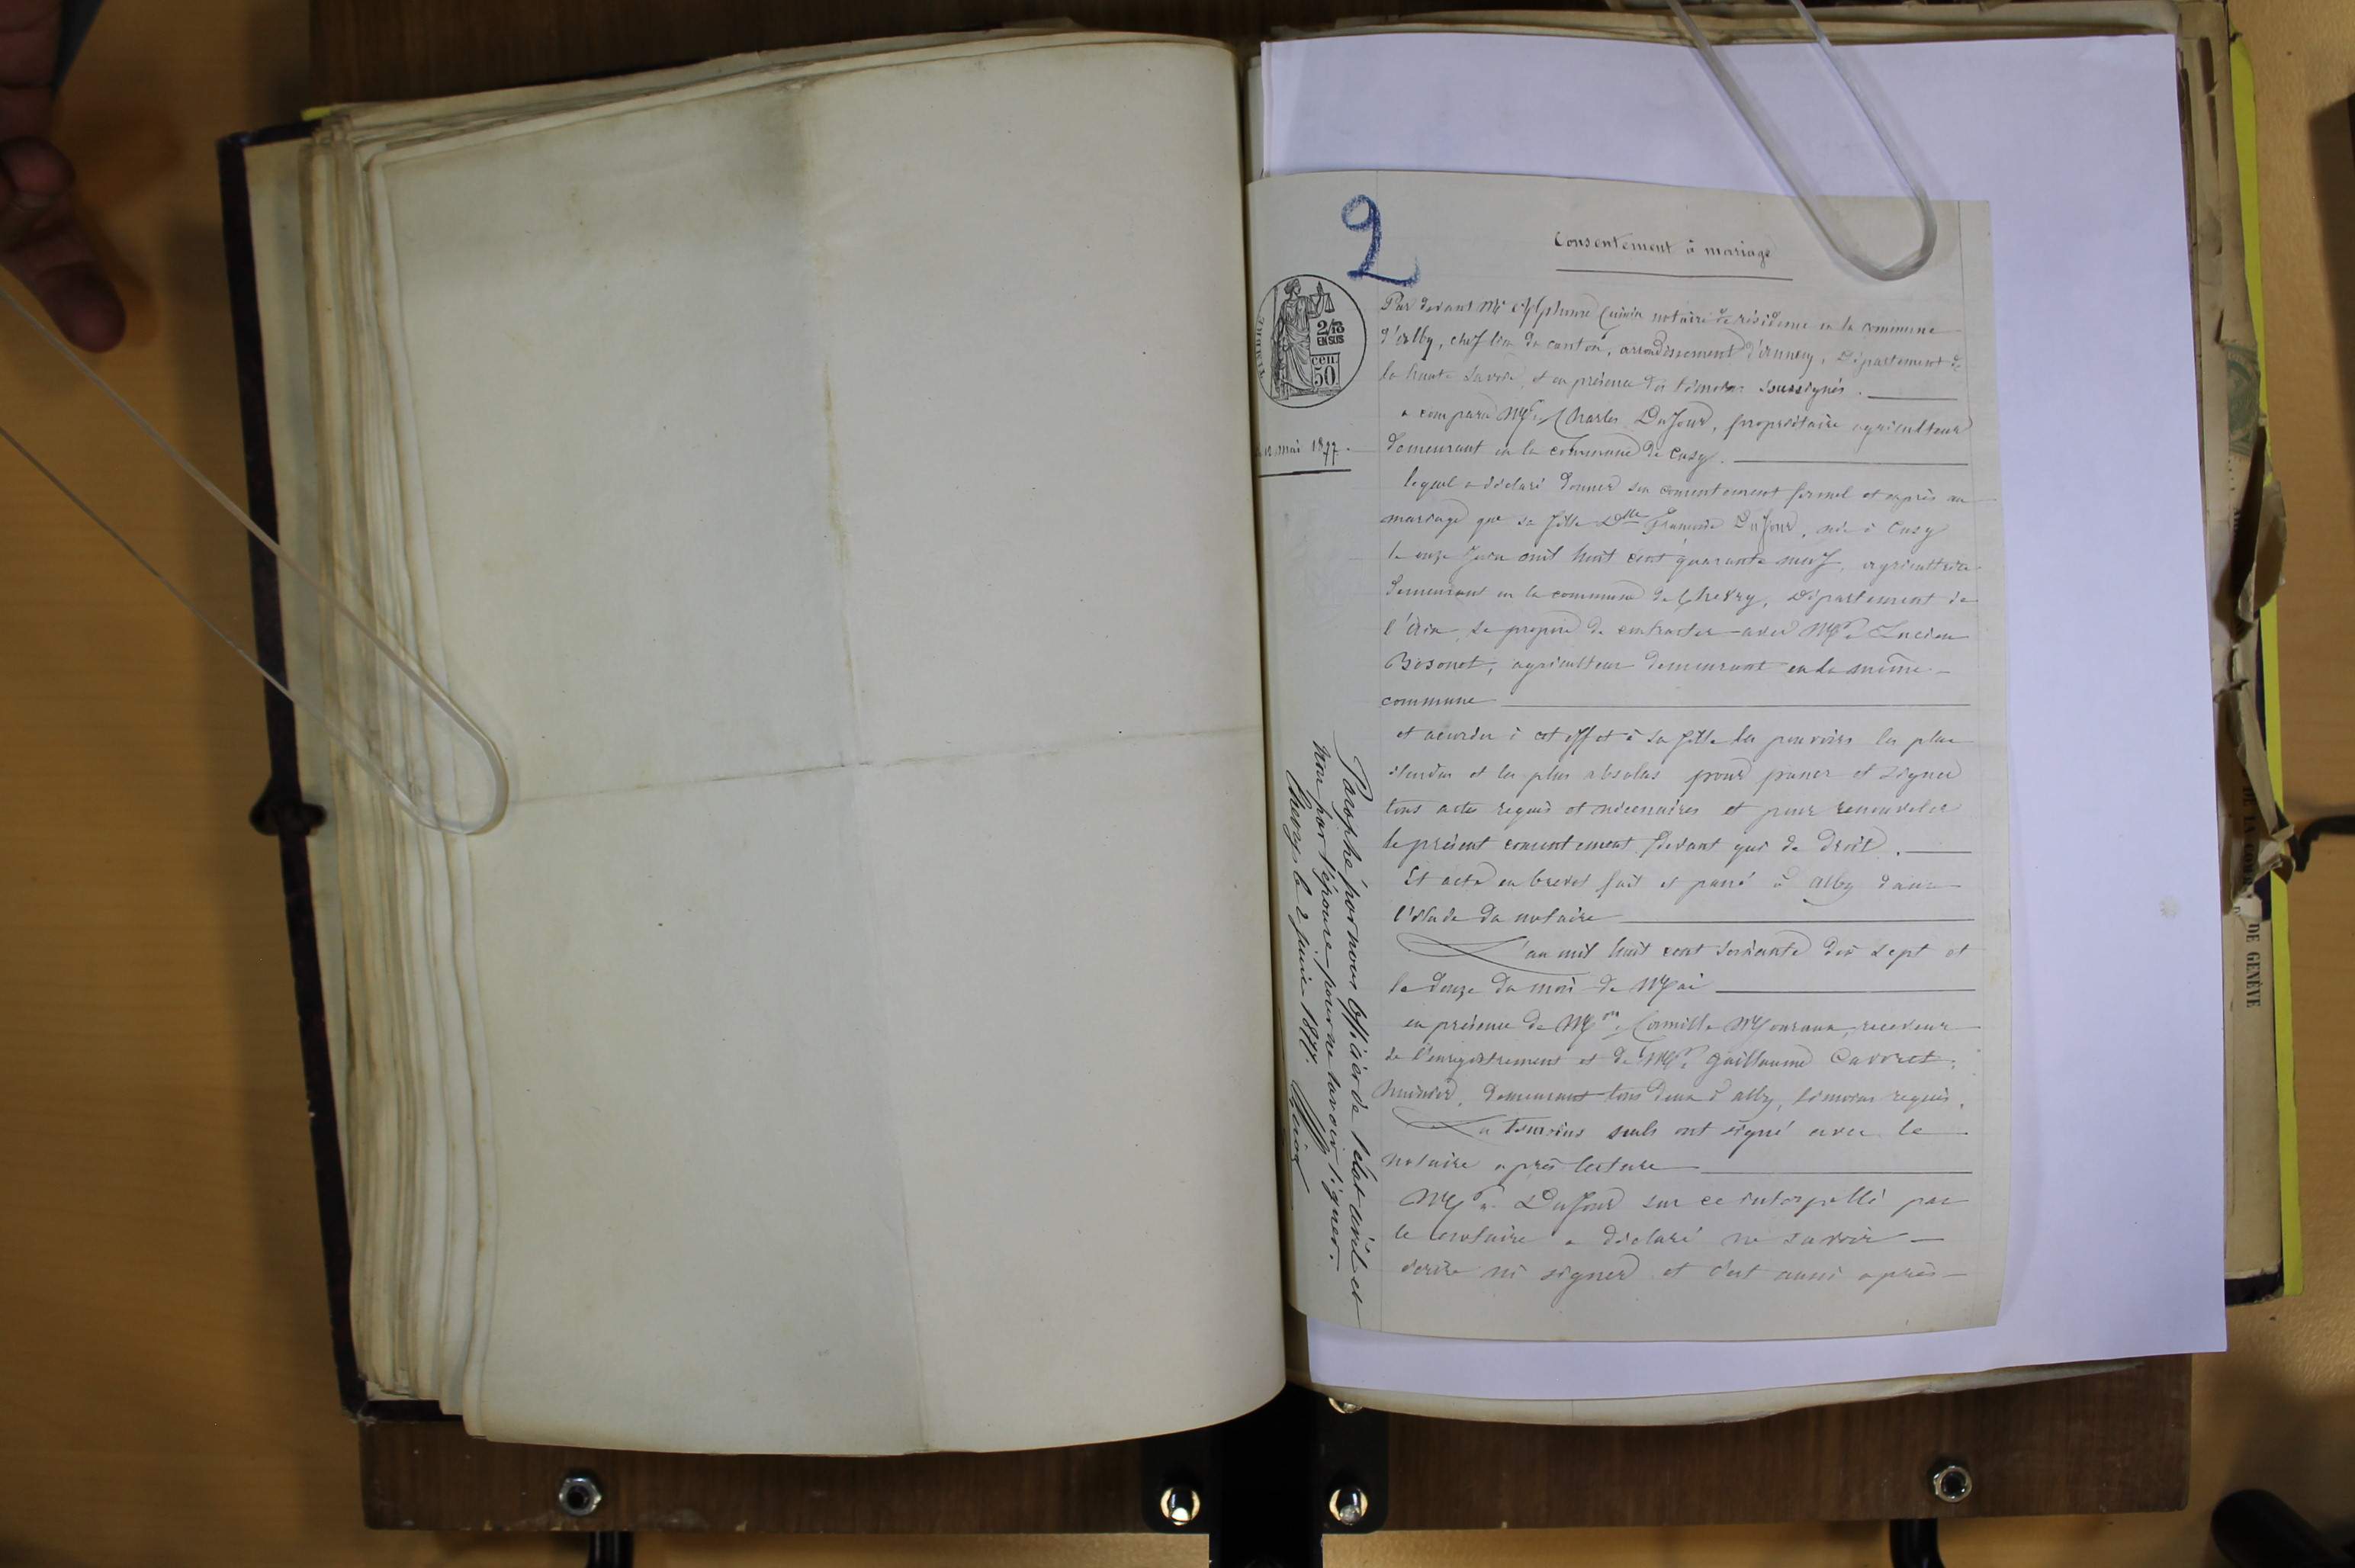 2
Consentement à mariage
TIMBRE
2/10
EN SUS
cen
50
12 mai 1877.
Par devant Me Alphonse notaire de résidence en la commune
d'alby, chef lieu de canton, arrondissement d'annecy, Département de
la haute Savoie, et en présence des témoins soussignés.
a comparu Mr. Charles Dufour, propriétaire agriculteur
demeurant en la commune de Cusy.
lequel a déclaré donner son consentement formel et exprès au
mariage que sa fille Dlle Françoise Dufour, née à Cusy
le onze Juin mil huit cent quarante neuf, agricultrice
demeurant en la commune de Chevry, Département de
l'Ain, se propose de contracter avec Mr. Lucien
Bosonet, agriculteur demeurant en la même
commune
et accorder à cet effet à sa fille les pouvoirs les plus
étendus et les plus absolus pour passer et signer
tous actes requis et nécessaires et pour renouveler
le présent consentement devant qui de droit.
Et acte en brevet fait et passé à alby dans
l'étude du notaire
L'an mil huit cent soixante dix sept et
le douze du mois de Mai
en présence de Mr. Camille receveur
de l'enregistrement et de Mr. Guillaume Carret,
demeurant tous deux à alby, témoins requis.
Les témoins seuls ont signé avec le
notaire après lecture
Mr. Dufour sur ce interpellé par
le notaire a déclaré ne savoir
écrire ni signer et c'est aussi après
Paraphé par nous Officier de l'état civil et
non par l'épouse pour ne savoir signer.
Chevry le 2 juin 1877.
DE LA COUR
DE GENÈVE